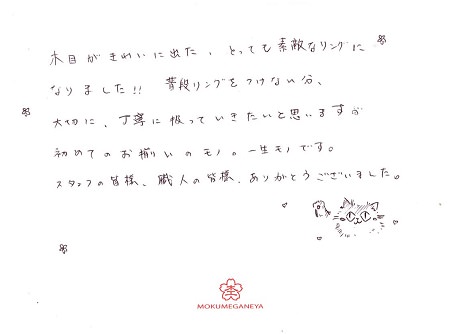 木目がきれいに出た、とっても素敵なリングに
なりました!! 普段リングをつけない分、
大切に、丁寧に扱っていきたいと思いますが
初めてのお揃いのモノ。一生モノです。
スタッフの皆様、職人の皆様、ありがとうございました。
MOKUMEGANEYA